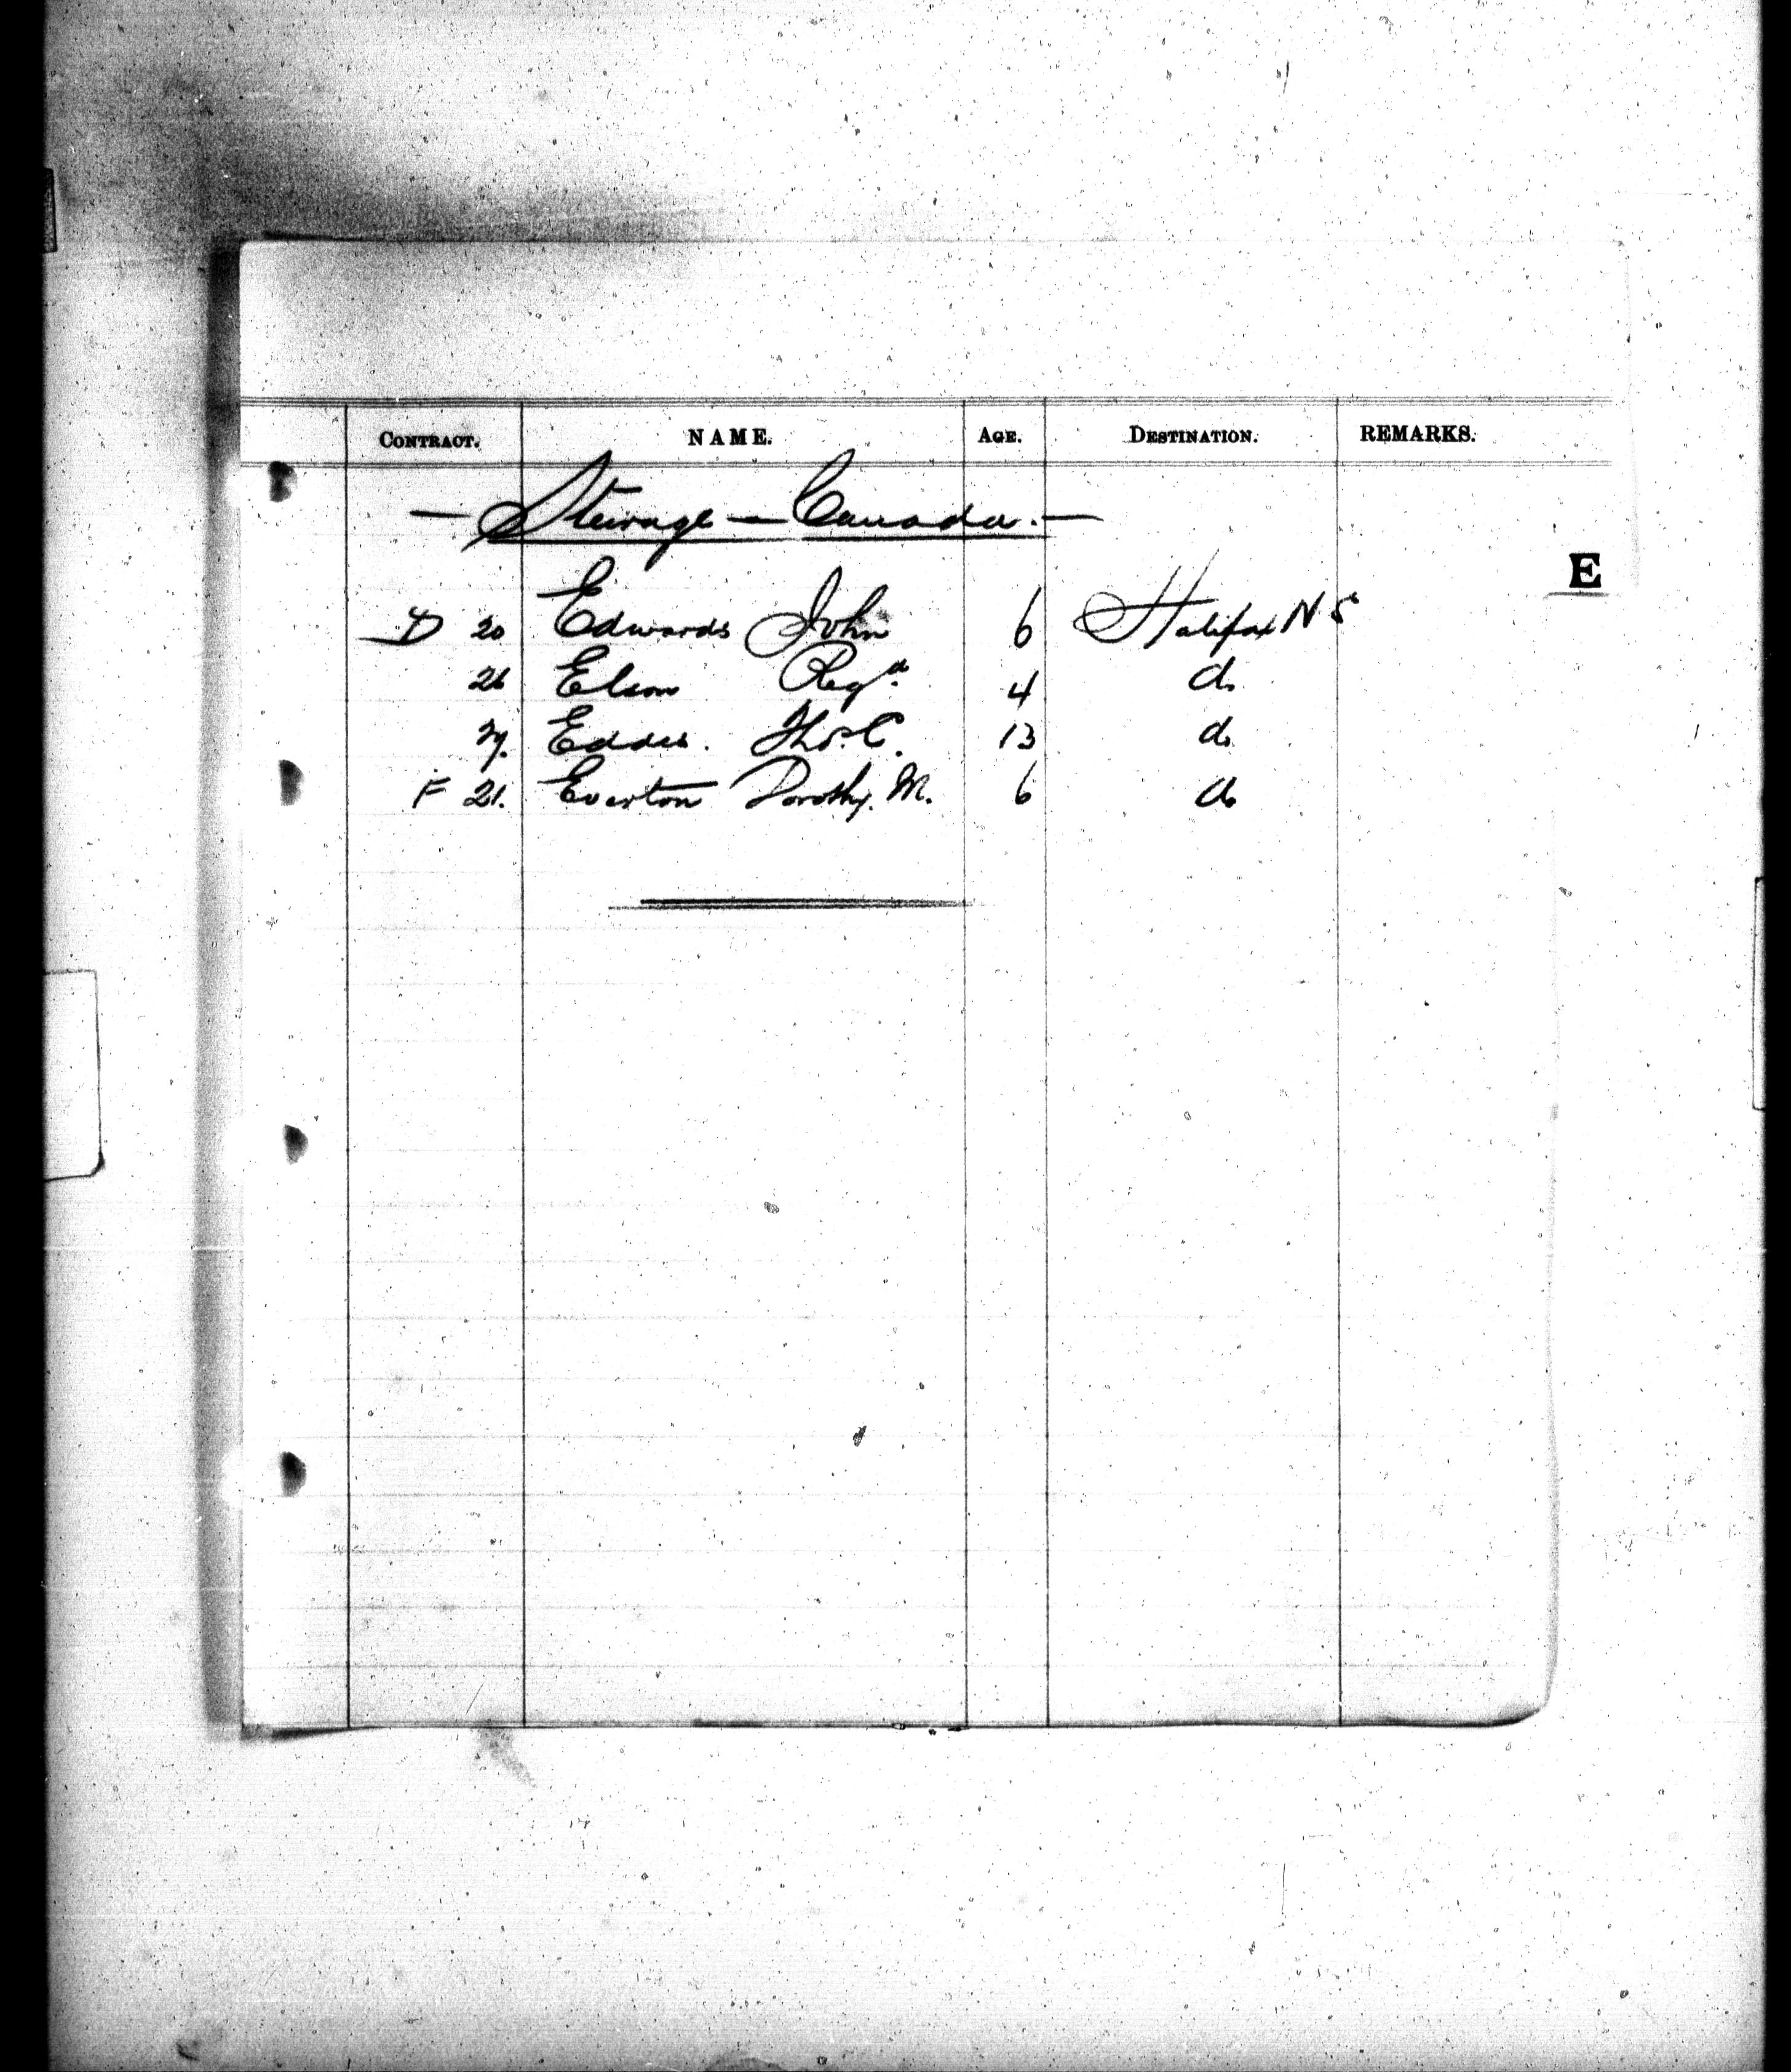 CONTRACT. NAME. AGE. DESTINATION. REMARKS.
— Steerage — Canada. —
E
D 20 Edwards John 6 Halifax N S
26 Elson Regd. 4 do
27. Eddis. Thos. C. 13 do
F 21. Everton Dorothy. M. 6 do